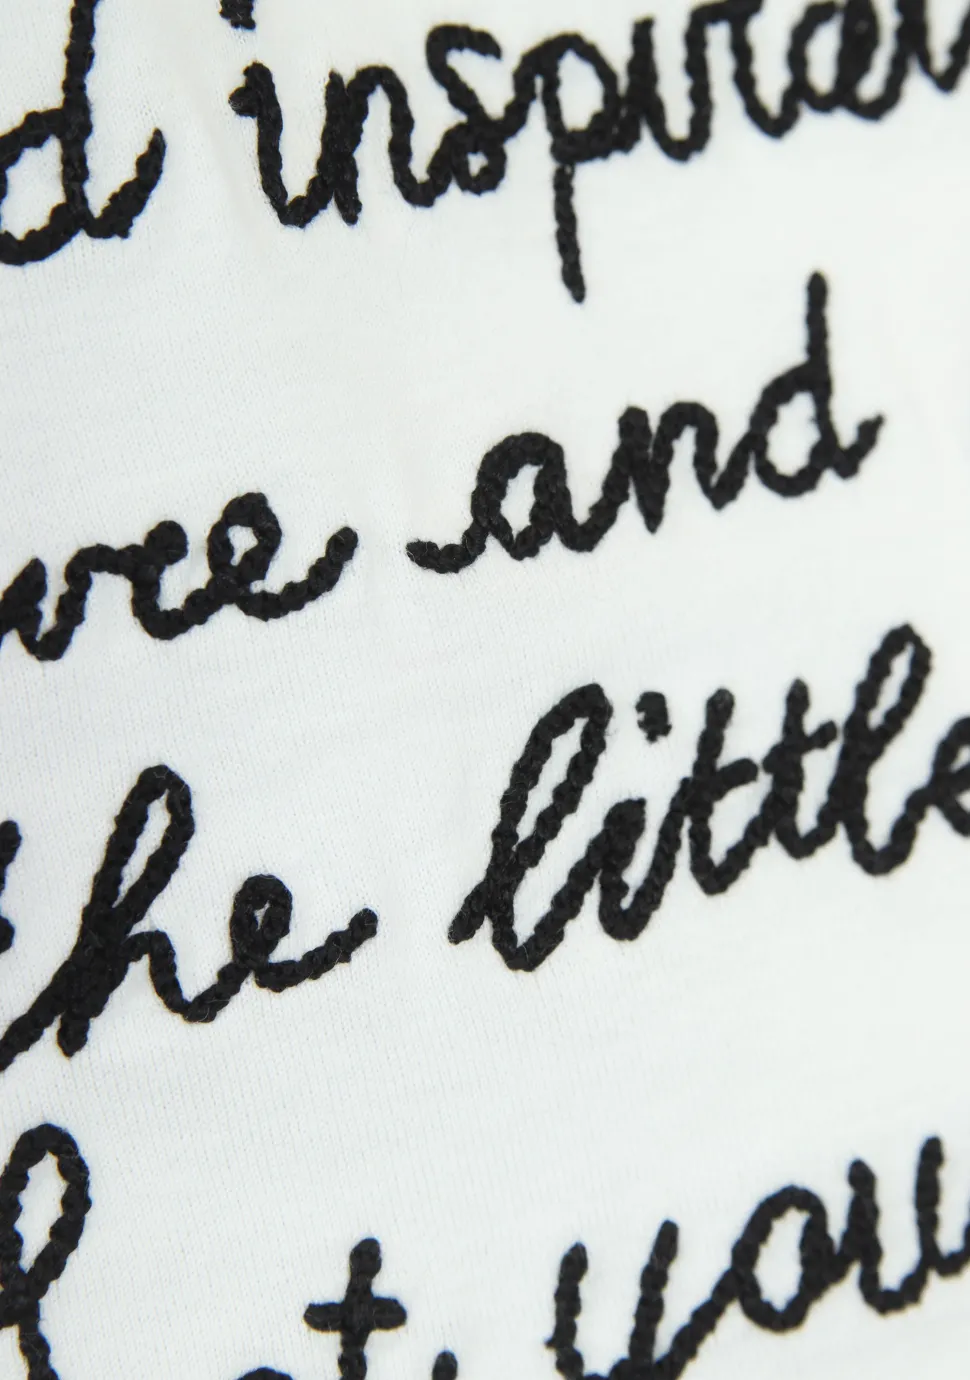 d inspirat
ure and
the little
you